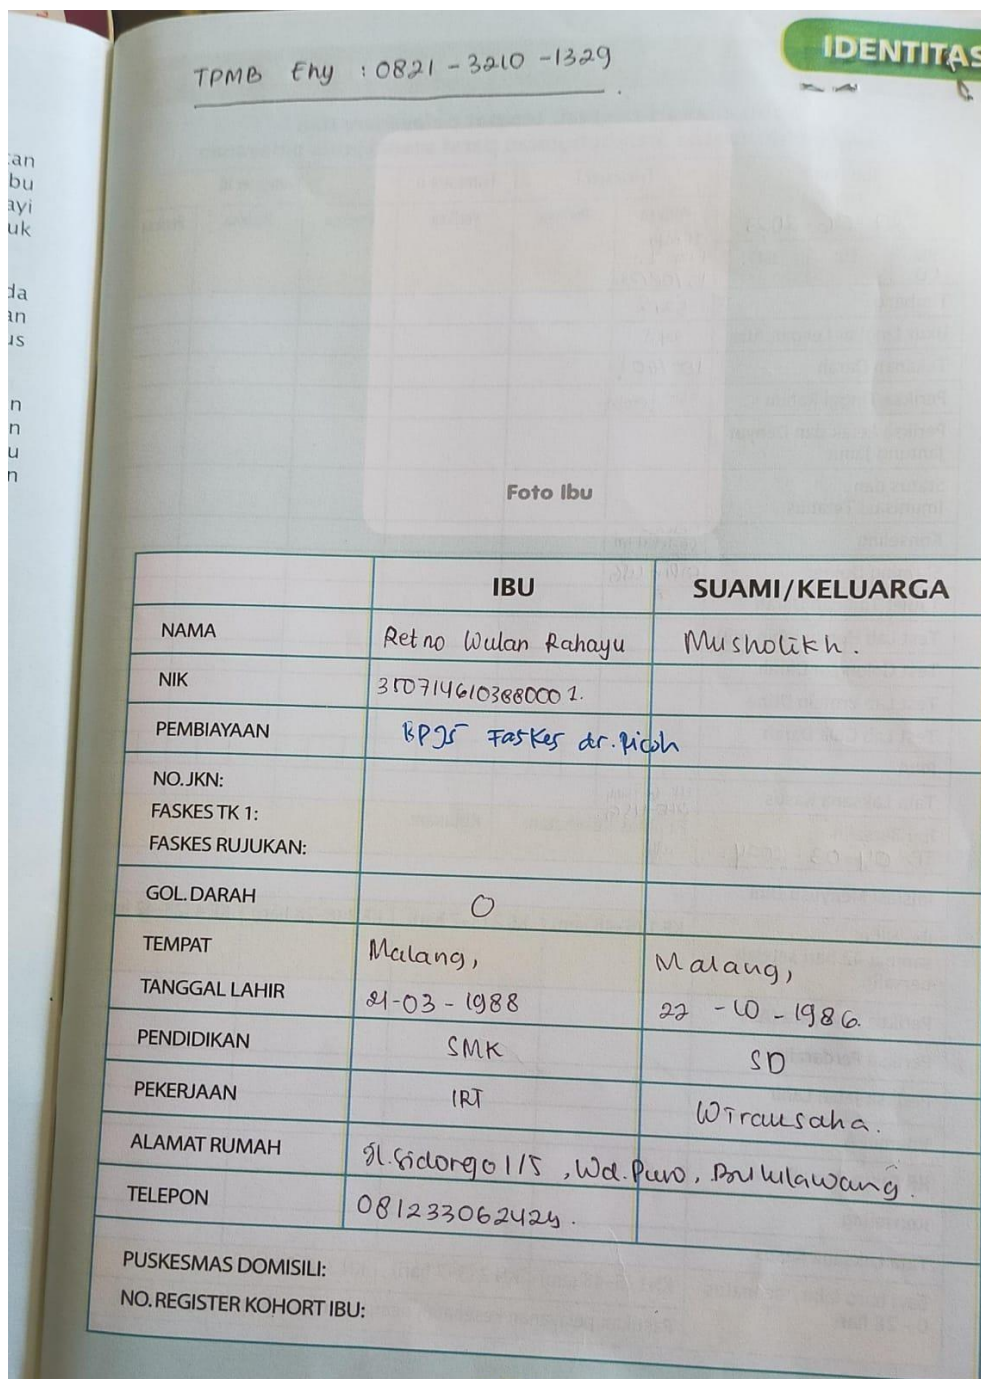 TPMB Ehy : 0821 - 3210 - 1329
IDENTITAS
an
bu
ayi
uk
da
an
us
n
n
u
n
Foto Ibu
IBU SUAMI/KELUARGA
NAMA Retno Wulan Rahayu Musholikh.
NIK 3507146103880001.
PEMBIAYAAN BPJS Faskes dr. Picoh
NO. JKN:
FASKES TK 1:
FASKES RUJUKAN:
GOL. DARAH O
TEMPAT Malang, Malang,
TANGGAL LAHIR 21-03-1988 22-10-1986.
PENDIDIKAN SMK SD
PEKERJAAN IRT Wirausaha.
ALAMAT RUMAH Jl. Sidorejo 1/5, Wd. Puro, Bululawang.
TELEPON 081233062424.
PUSKESMAS DOMISILI:
NO. REGISTER KOHORT IBU: